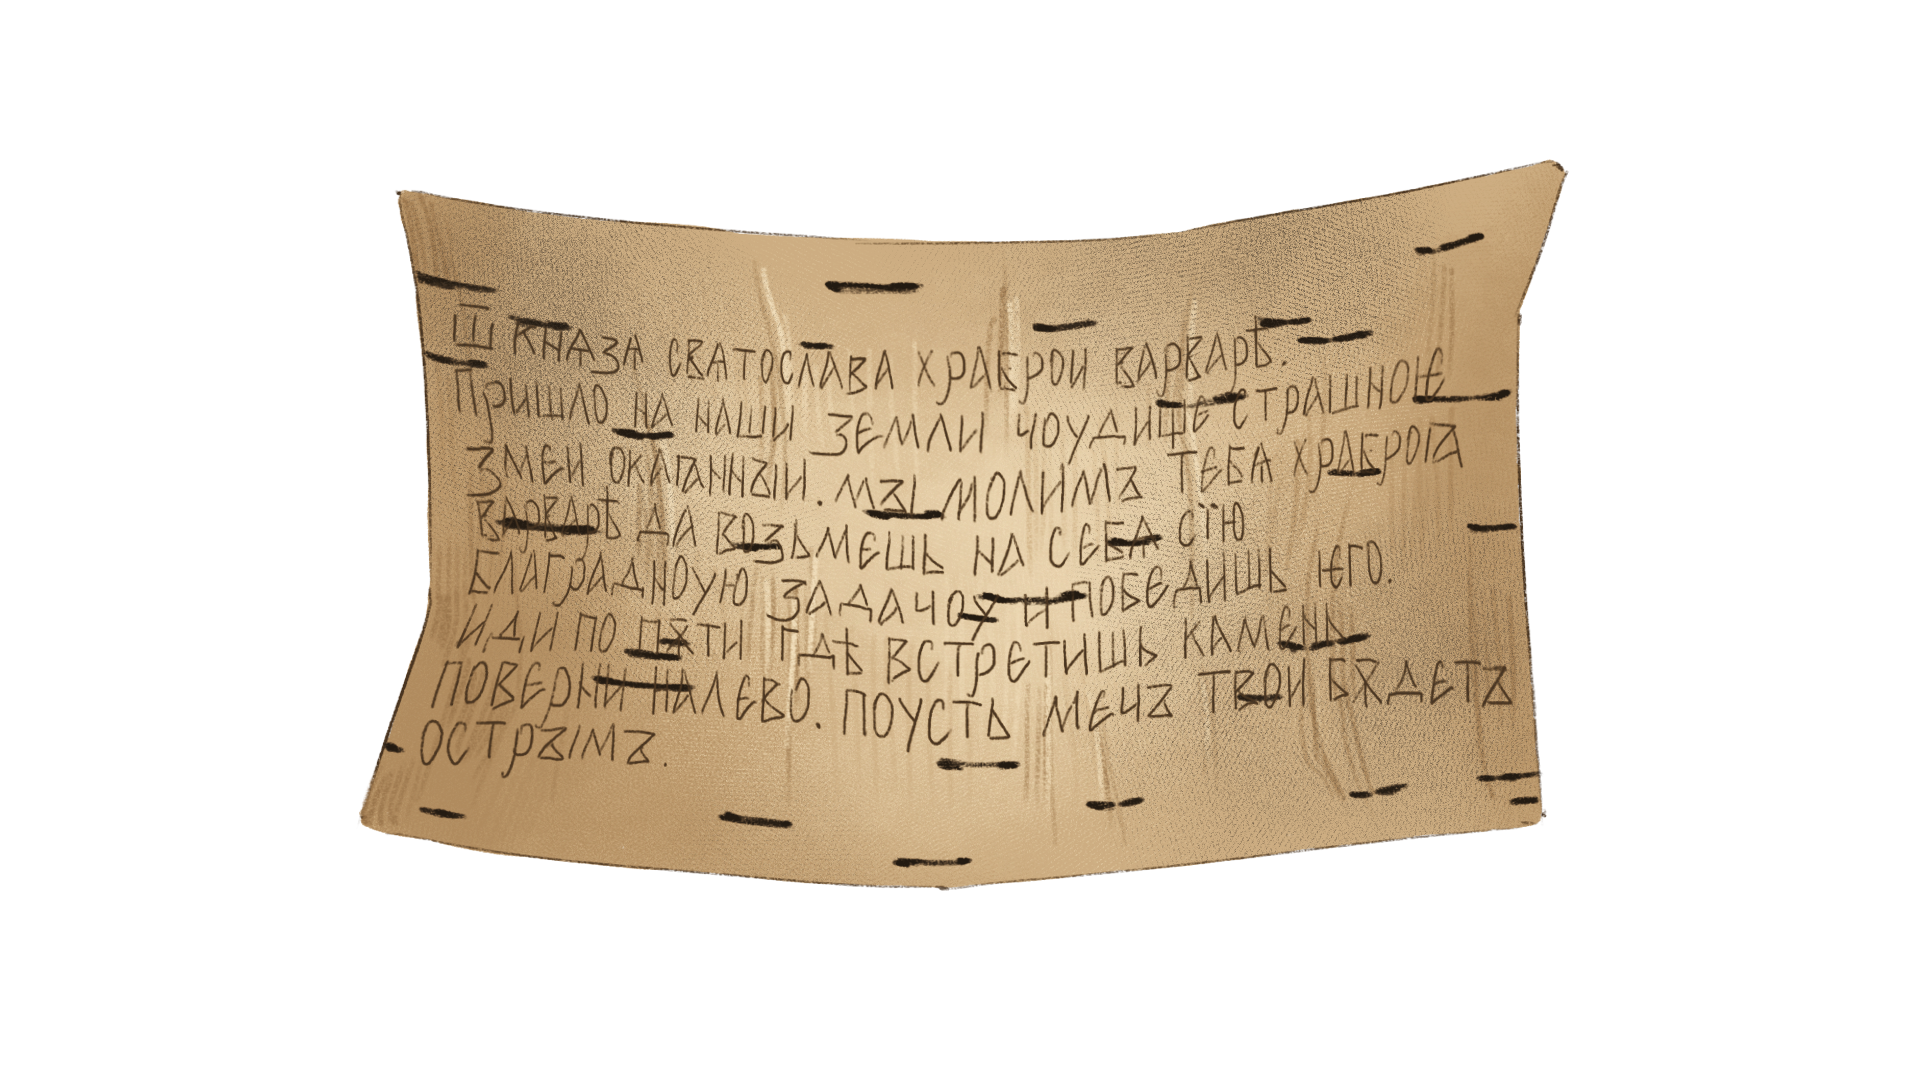 Ѿ КНѦЗѦ СВАТОСЛАВА ХРАБРОИ ВАРВАРѢ.
ПРИШЛО НА НАШИ ЗЕМЛИ ЧОУДИЩЕ СТРАШНОѤ
ЗМЕИ ОКАꙖННЪІИ. МЪІ МОЛИМЪ ТЕБѦ ХРАБРОꙖ
ВАРВАРѢ ДА ВОЗЬМЕШЬ НА СЕБѦ СЇЮ
БЛАГРАДНОУЮ ЗАДАЧОУ И ПОБЕДИШЬ ѤГО.
ИДИ ПО ПѪТИ ГДѢ ВСТРЕТИШЬ КАМЕНЬ
ПОВЕРНИ НАЛЕВО. ПОУСТЬ МЕЧЪ ТВОИ БѪДЕТЪ
ОСТРЪІМЪ.